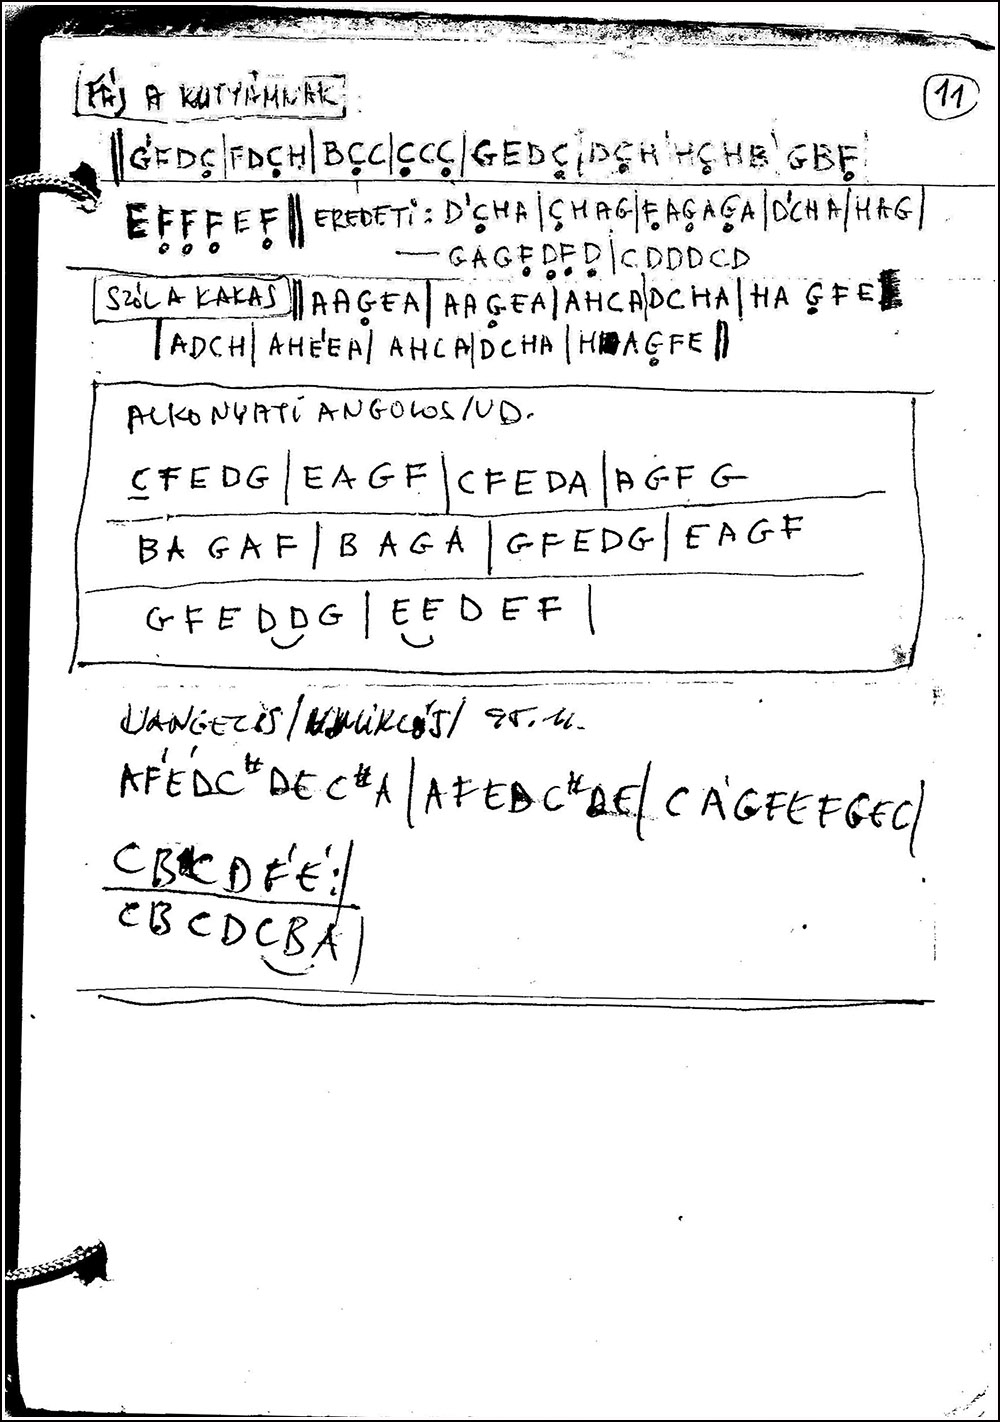 FÁJ A KUTYÁMNAK
11
‖G'FDC̣|FDC̣H|BC̣C|C̣CC̣|GEDC̣|DC̣H'HC̣HB'GBF̣
EF̣F̣F̣EF̣‖EREDETI: D'C̣HA|C̣HAG|F̣AG̣AG̣A|D'CHA|HAG|
—GAGF̣ḌF̣Ḍ|CDDDCD
SZÓL A KAKAS ‖AAG̣EA|AAG̣EA|AHCA|DCHA|HA G̣FE
|ADCH|AHE'EA|AHCA|DCHA|H AG̣FE‖
ALKONYATI ANGOLOS/UD.
C̲FEDG|EAGF|CFEDA|AGFG
BAGAF|BAGA|GFEDG|EAGF
GFEDDG|EEDEF|
VANGELIS/ 95.11.
AF'E'DC#DEC#A|AFEDC#DE|CA'GFEFGEC|
CBCDF'E':|
CBCDCBA|